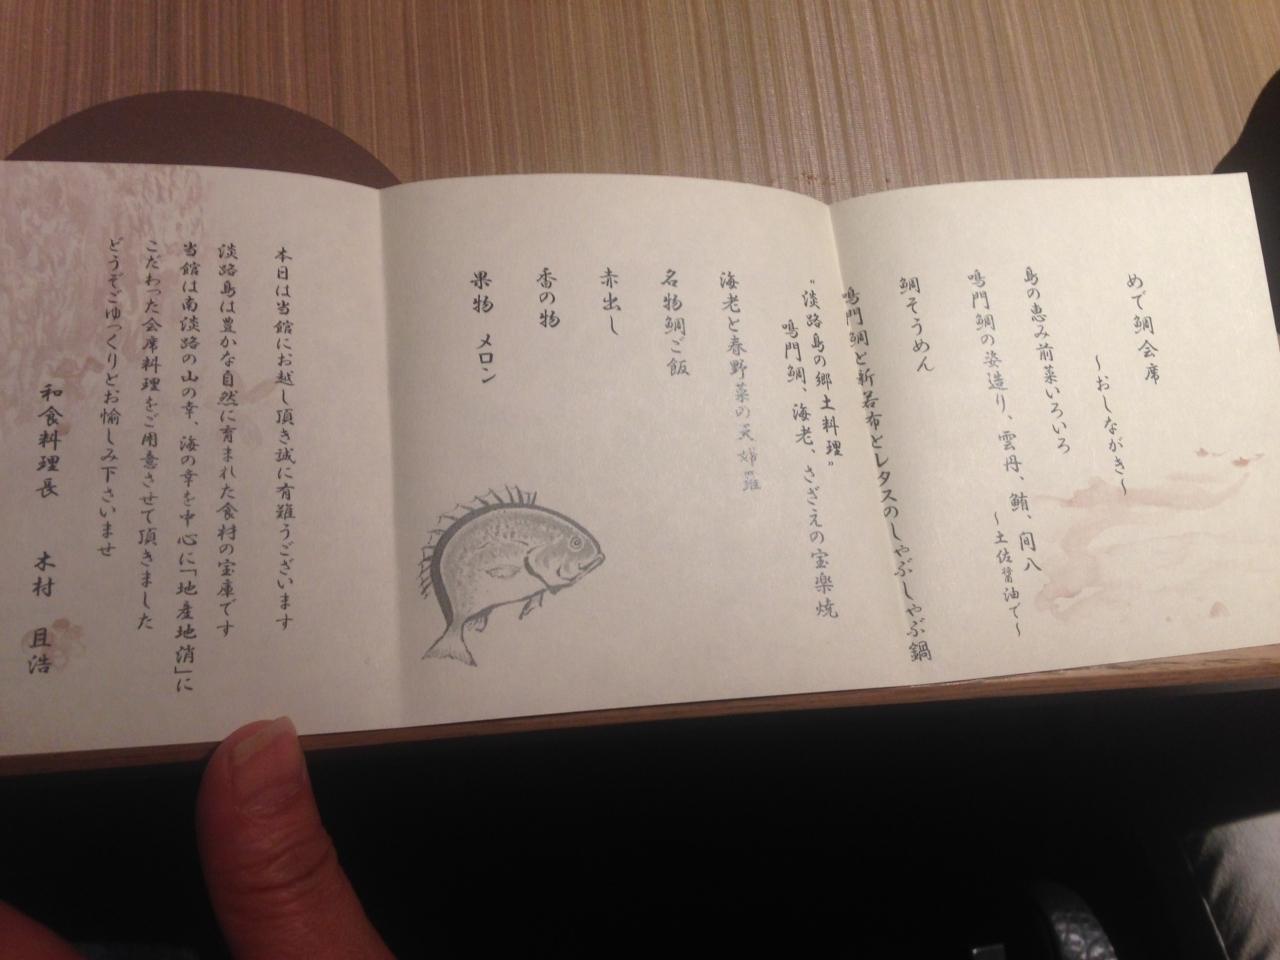 めで鯛会席
～おしながき～
島の恵み前菜いろいろ
鳴門鯛の姿造り、雲丹、鮪、間八
～土佐醤油で～
鯛そうめん
鳴門鯛と新若布とレタスのしゃぶしゃぶ鍋
"淡路島の郷土料理"
鳴門鯛、海老、さざえの宝楽焼
海老と春野菜の天婦羅
名物鯛ご飯
赤出し
香の物
果物　メロン
本日は当館にお越し頂き誠に有難うございます
淡路島は豊かな自然に育まれた食材の宝庫です
当館は南淡路の山の幸、海の幸を中心に「地産地消」に
こだわった会席料理をご用意させて頂きました
どうぞごゆっくりとお愉しみ下さいませ
和食料理長　木村　且浩